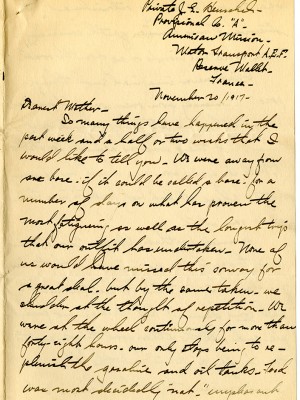 Private J. E.
Provisional Co. "A"-
American Mission-
Motor Transport A.E.F.
Reserve Mallet-
France-
November 20/1917-
Dearest Mother-
So many things have happened in the
past week and a half or two weeks that I
would like to tell you- We were away from
our base- if it could be called a base- for a
number of days on what has proven the
most fatiguing as well as the longest trip
that our outfit has undertaken- None of
us would have missed this convoy for
a great deal- but by the same token- we
shudder at the thought of repetition- We
were at the wheel continuously for more than
forty-eight hours- our only stops being to re-
plenish the gasoline and oil tanks- Food
was most decidedly not- "